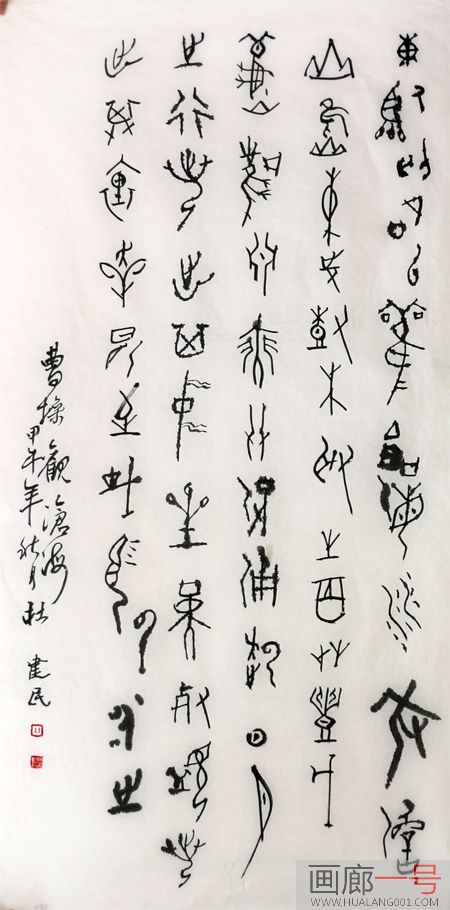 東臨碣石以觀滄海水何澹
山島竦峙樹木叢生百草豐茂
秋風蕭瑟洪波湧起日月
之行若出其中星漢燦爛若
出其裏幸甚至哉歌以詠志
曹操觀滄海
甲午年秋月杜建民
画廊一号
WWW.HUALANG001.COM